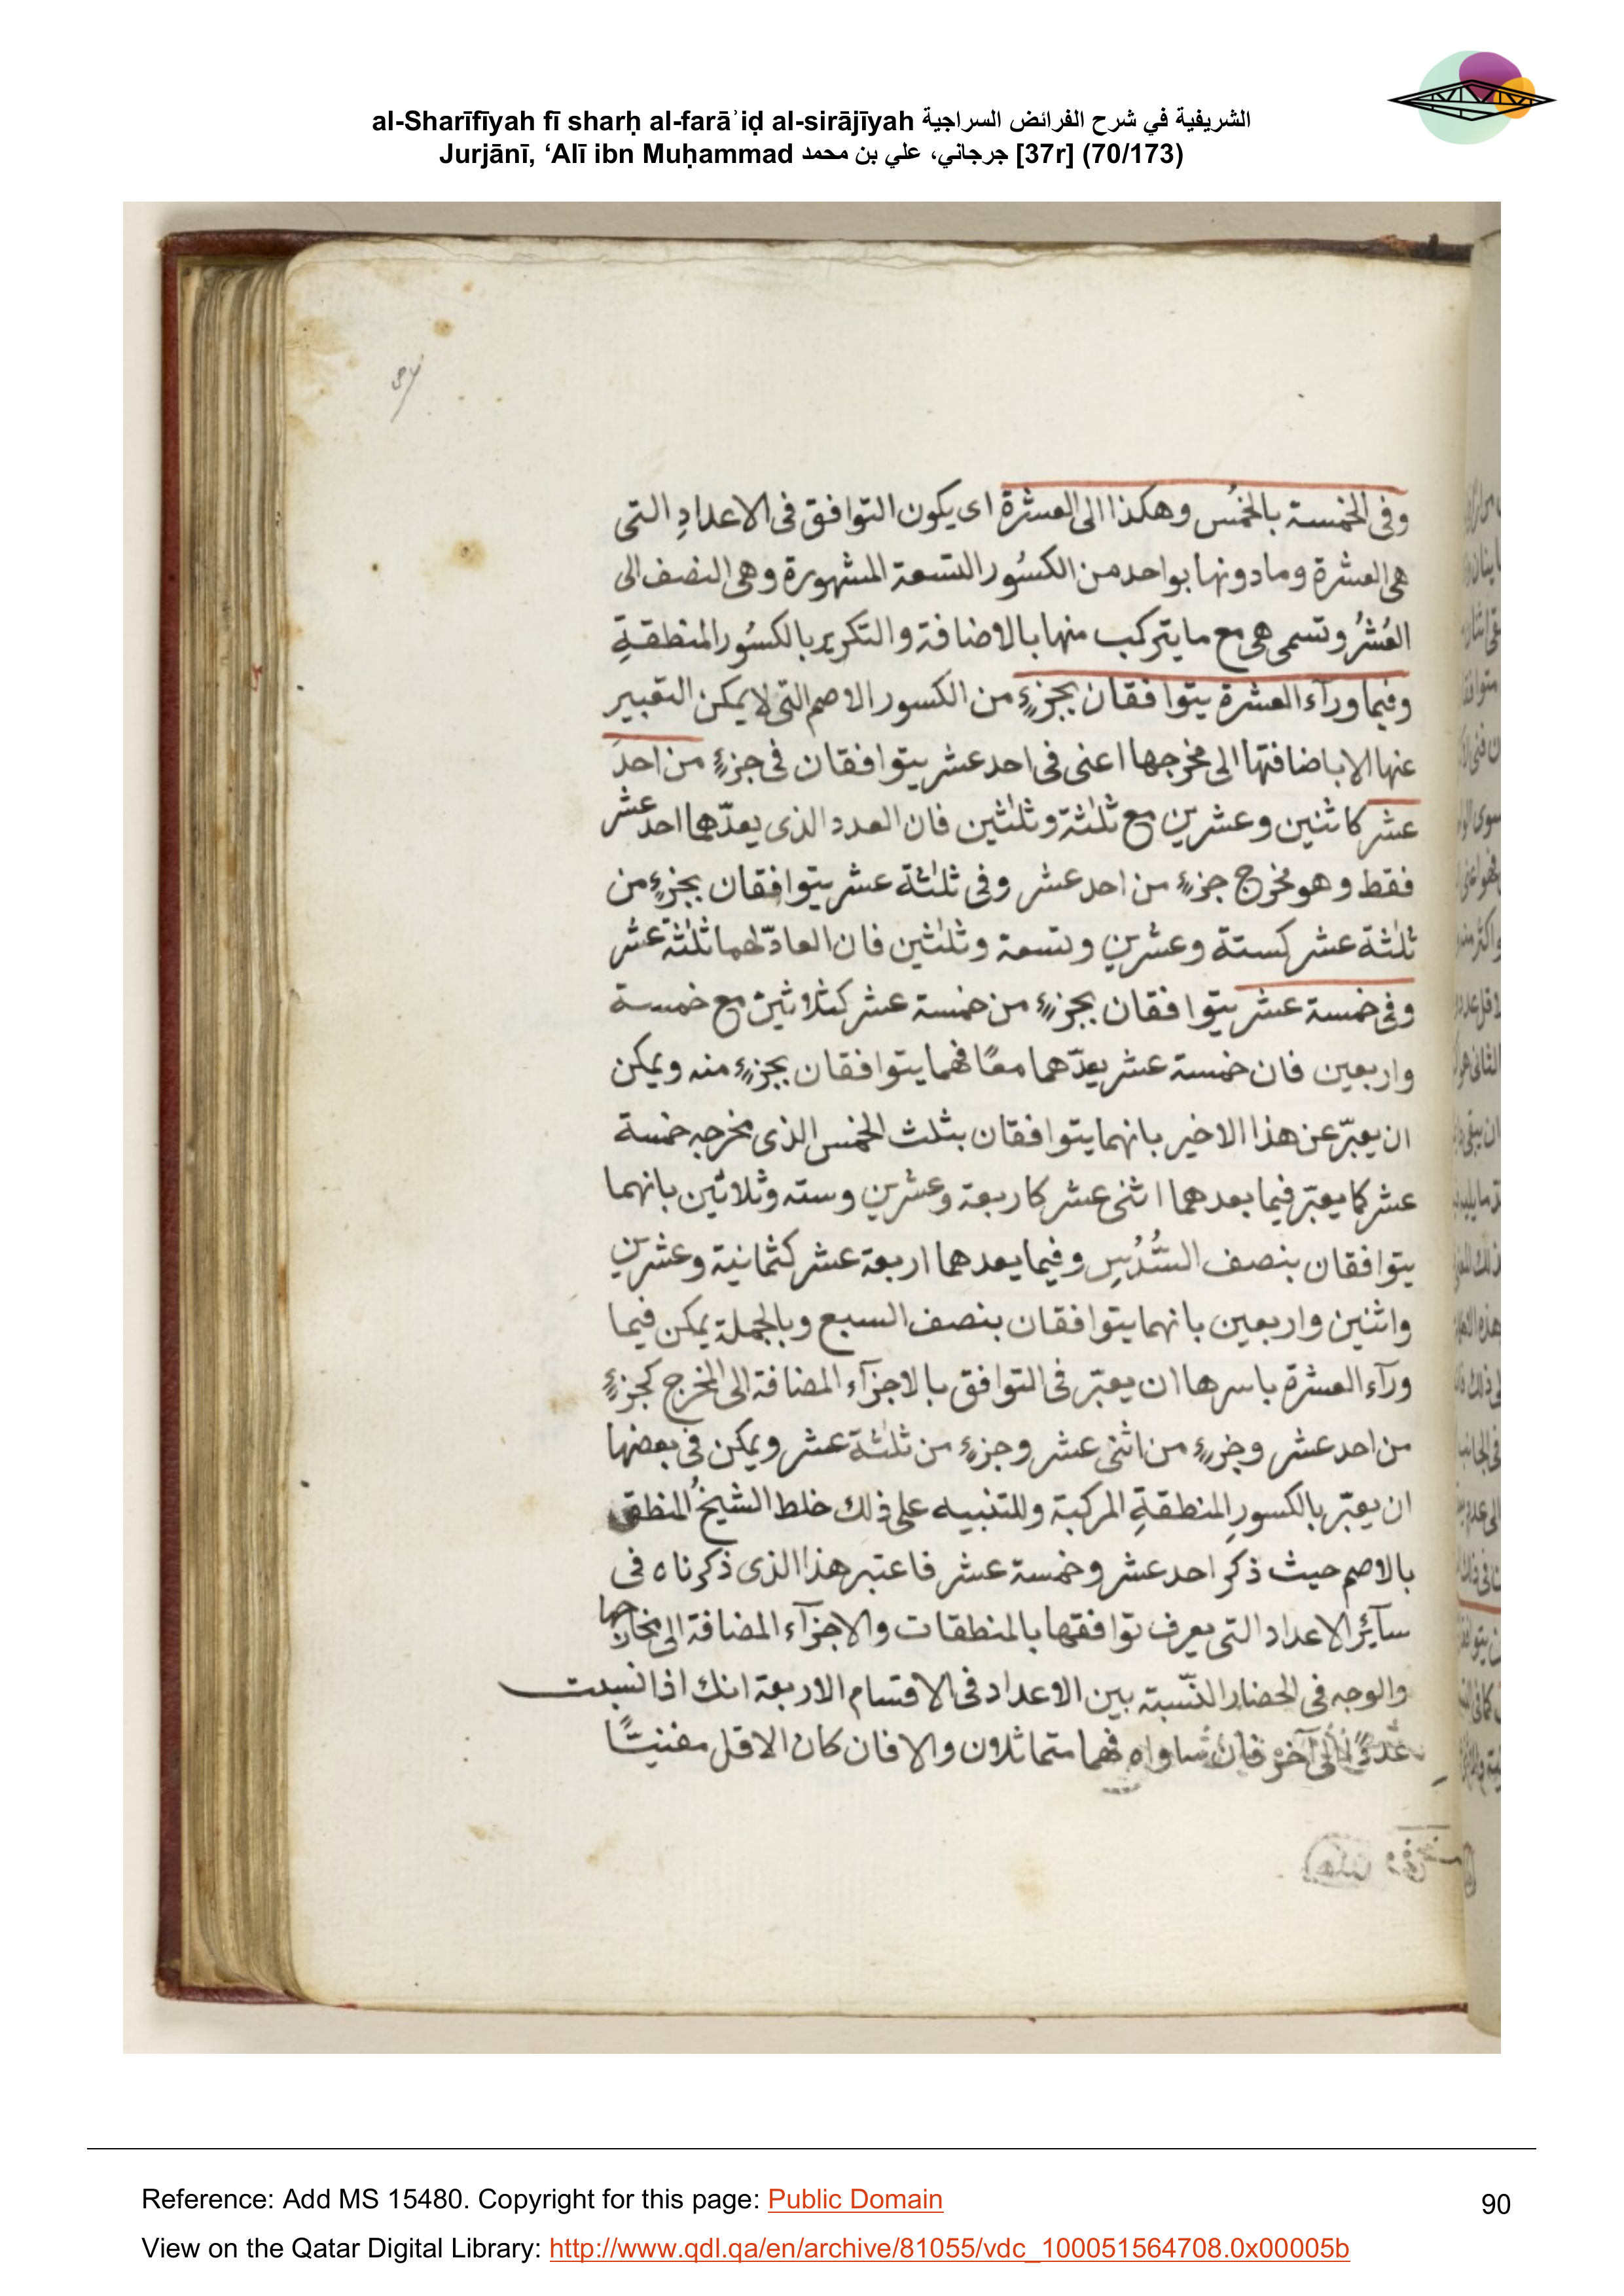 al-Sharīfīyah fī sharḥ al-farāʾiḍ al-sirājīyah الشريفية في شرح الفرائض السراجية
Jurjānī, ‘Alī ibn Muḥammad جرجاني، علي بن محمد [37r] (70/173)
وفى الخمسة بالخُمس وهكذا الى العشرة اى يكون التوافق فى الاعدادِ التى
هى العشرة وما دونها بواحد من الكسُور التسعة المشهورة وهى النصف الى
العُشْرُ وتسمى هى مع ما يتركب منها بالاضافة والتكرير بالكسُور المنطقةِ
وفيما ورآء العشرة يتوافقان بجزءٍ من الكسور الاصم التى لا يمكن التعبير
عنها الا باضافتها الى مخرجها اعنى فى احد عشر يتوافقان فى جزءٍ من احدَ
عشر كاثنين وعشرين مع ثلثة وثلثين فان العدد الذى يعدّهما احد عشر
فقط وهو مخرج جزءٍ من احد عشر وفى ثلثة عشر يتوافقان بجزءٍ من
ثلثة عشر كستة وعشرين وتسعة وثلثين فان العادّ لهما ثلثة عشر
وفى خمسة عشر يتوافقان بجزءٍ من خمسة عشر كثلاثين مع خمسة
واربعين فان خمسة عشر يعدّهما معًا فهما يتوافقان بجزءٍ منه ويمكن
ان يعبّر عن هذا الاخير بانهما يتوافقان بثلث الخمس الذى مخرجه خمسة
عشر كما يعبّر فيما يعدهما اثنى عشر كاربعة وعشرين وسته وثلاثين بانهما
يتوافقان بنصف السُّدُسِ وفيما يعدهما اربعة عشر كثمانية وعشرين
واثنين واربعين بانهما يتوافقان بنصف السبع وبالجملة يمكن فيما
ورآء العشرة باسرها ان يعبّر فى التوافق بالاجزآء المضافة الى المخرج كجزءٍ
من احد عشر وجزءٍ من اثنى عشر وجزءٍ من ثلثة عشر ويمكن فى بعضها
ان يعبّر بالكسورِ المنطقةِ المركبة وللتنبيه على ذلك خلط الشيخُ المنطق
بالاصم حيث ذكر احد عشر وخمسة عشر فاعتبر هذا الذى ذكرناه فى
سآئر الاعداد التى يعرف توافقها بالمنطقات والاجزآء المضافة الى مخارجها
والوجه فى انحصار النّسبة بين الاعداد فى الاقسام الاربعة انك اذا نسبت
عددًا الى آخر فان ساواه فهما متماثلون والا فان كان الاقل مفنيًّا
Reference: Add MS 15480. Copyright for this page: Public Domain
90
View on the Qatar Digital Library: http://www.qdl.qa/en/archive/81055/vdc_100051564708.0x00005b